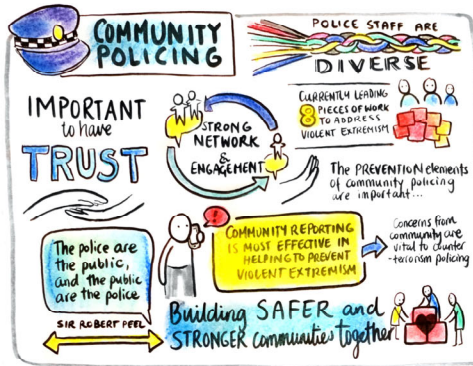 COMMUNITY
POLICING
POLICE STAFF ARE
DIVERSE
IMPORTANT
to have
TRUST
STRONG
NETWORK
&
ENGAGEMENT
CURRENTLY LEADING
8 PIECES OF WORK
TO ADDRESS
VIOLENT EXTREMISM
The PREVENTION elements
of community policing
are important...
The police are
the public,
and the public
are the police
SIR ROBERT PEEL
COMMUNITY REPORTING
IS MOST EFFECTIVE IN
HELPING TO PREVENT
VIOLENT EXTREMISM
Concerns from
community are
vital to counter
-terrorism policing
Building SAFER and
STRONGER communities together